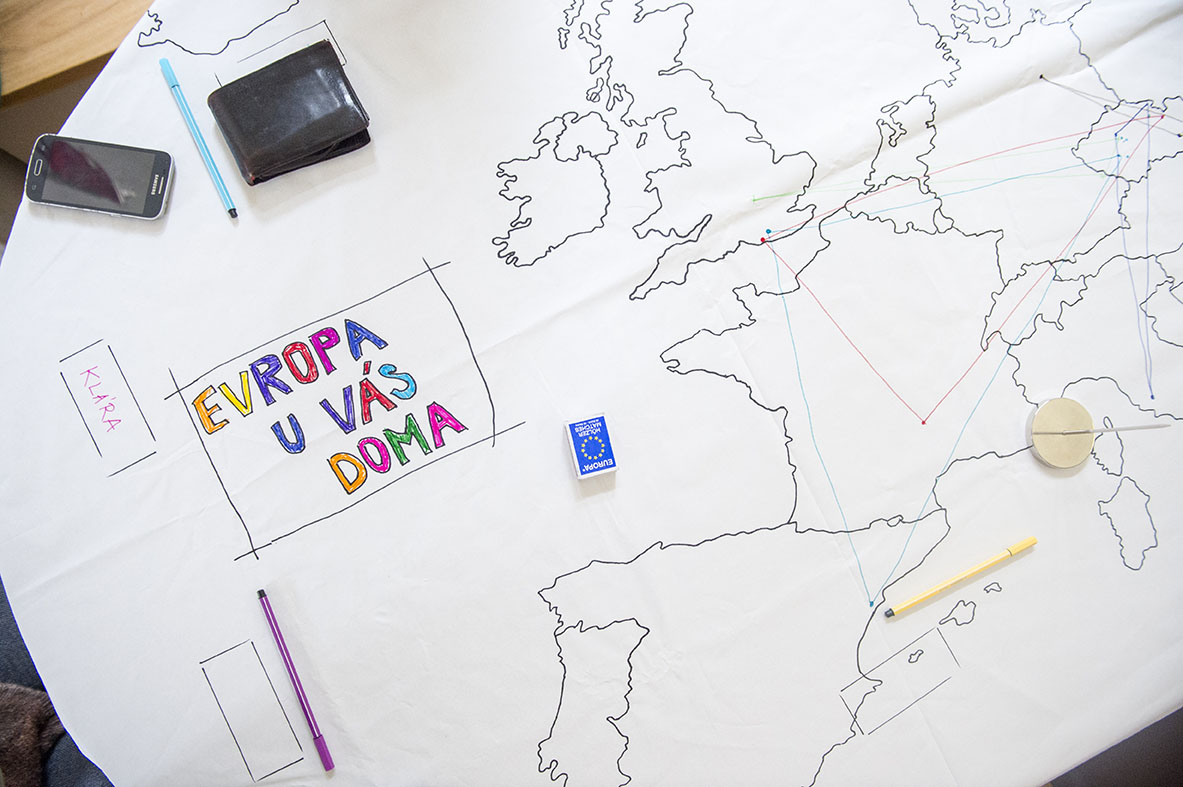 SAMSUNG
KLÁRA
EVROPA
U VÁS
DOMA
EUROPA
HÖLZER
MATCHES